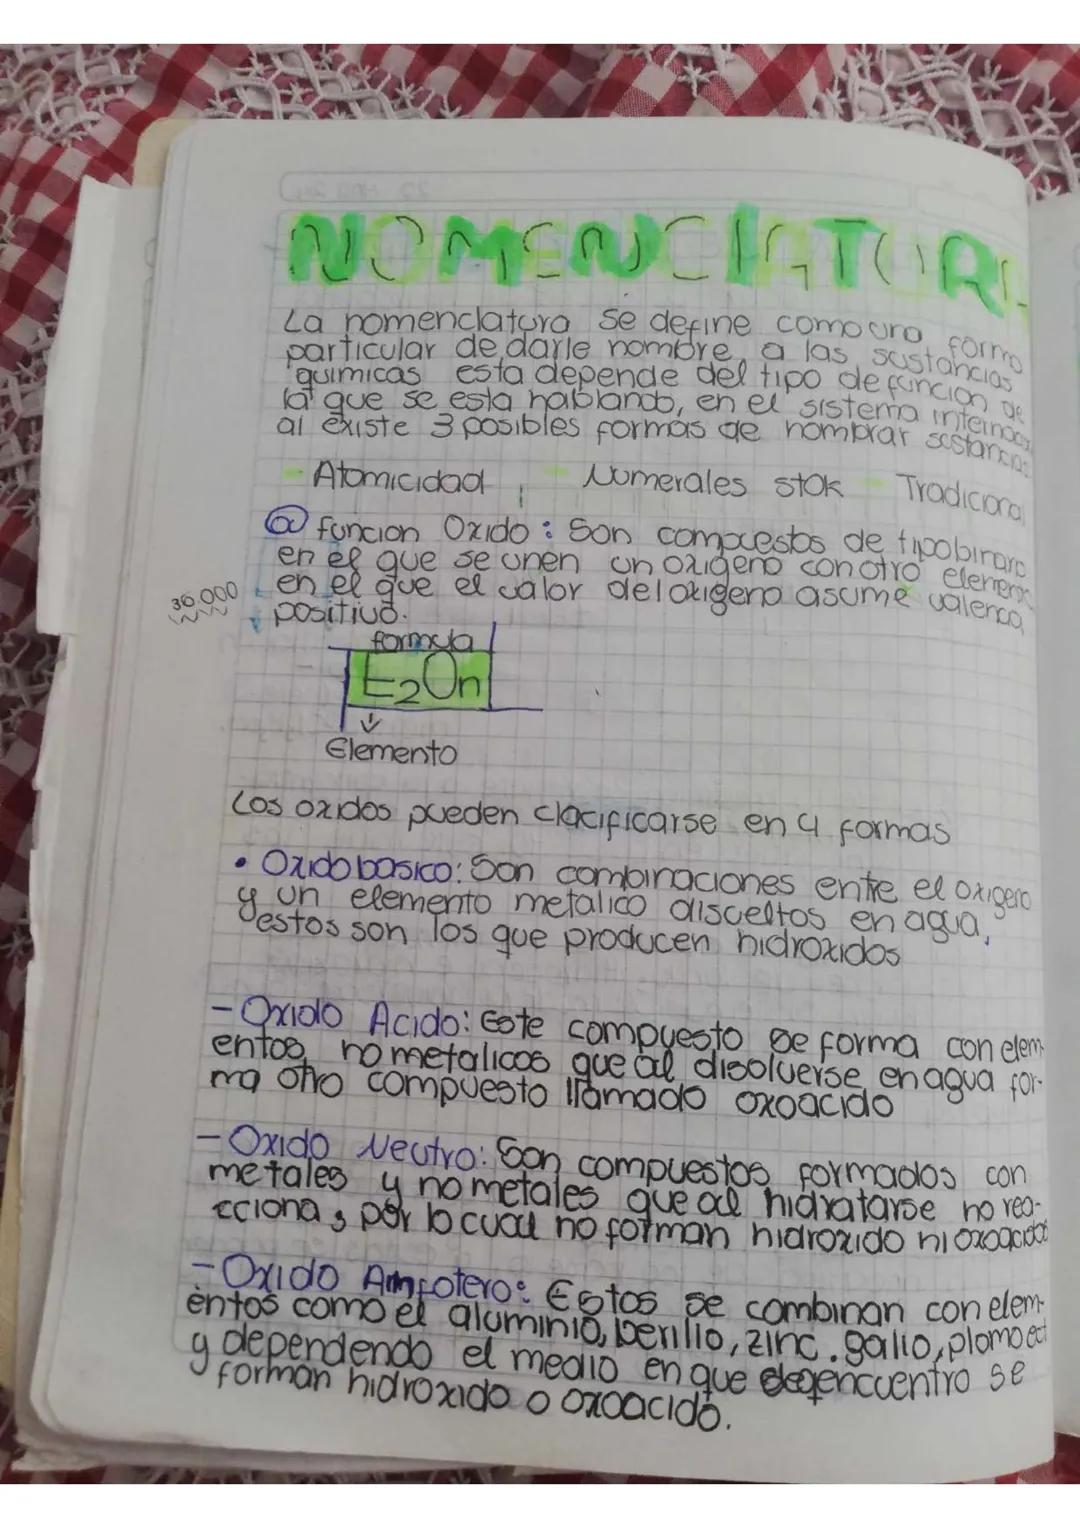 NOMENCLATURA
La nomenclatura se define como una forma
particular de darle nombre a las sustancias
quimicas esta depende del tipo de funcion de
la que se esta hablando, en el sistema internaci
al existe 3 posibles formas de nombrar sustancias
- Atomicidad - Numerales stok - Tradicional
@ funcion Oxido: Son compuestos de tipo binaro
en el que se unen un oxigeno con otro elemento
en el que el valor del oxigeno asume valenca
36.000
positivo.
formula
E2On
Elemento
Los oxidos pueden clacificarse en 4 formas
• Oxido basico: Son combinaciones entre el oxigeno
y un elemento metalico disueltos en agua,
estos son los que producen hidroxidos
- Oxido Acido: Este compuesto se forma con elem-
entos no metalicos que al disolverse en agua for-
ma otro compuesto llamado oxoacido
- Oxido Neutro: Son compuestos formados con
metales y no metales que al hidratarse no rea-
cciona, por lo cual no forman hidroxido ni oxoacidos
- Oxido Amfotero: Estos se combinan con elem-
entos como el aluminio, berillio, zinc. galio, plomo ect
y dependendo el medio en que se encuentro se
forman hidroxido o oxoacido.